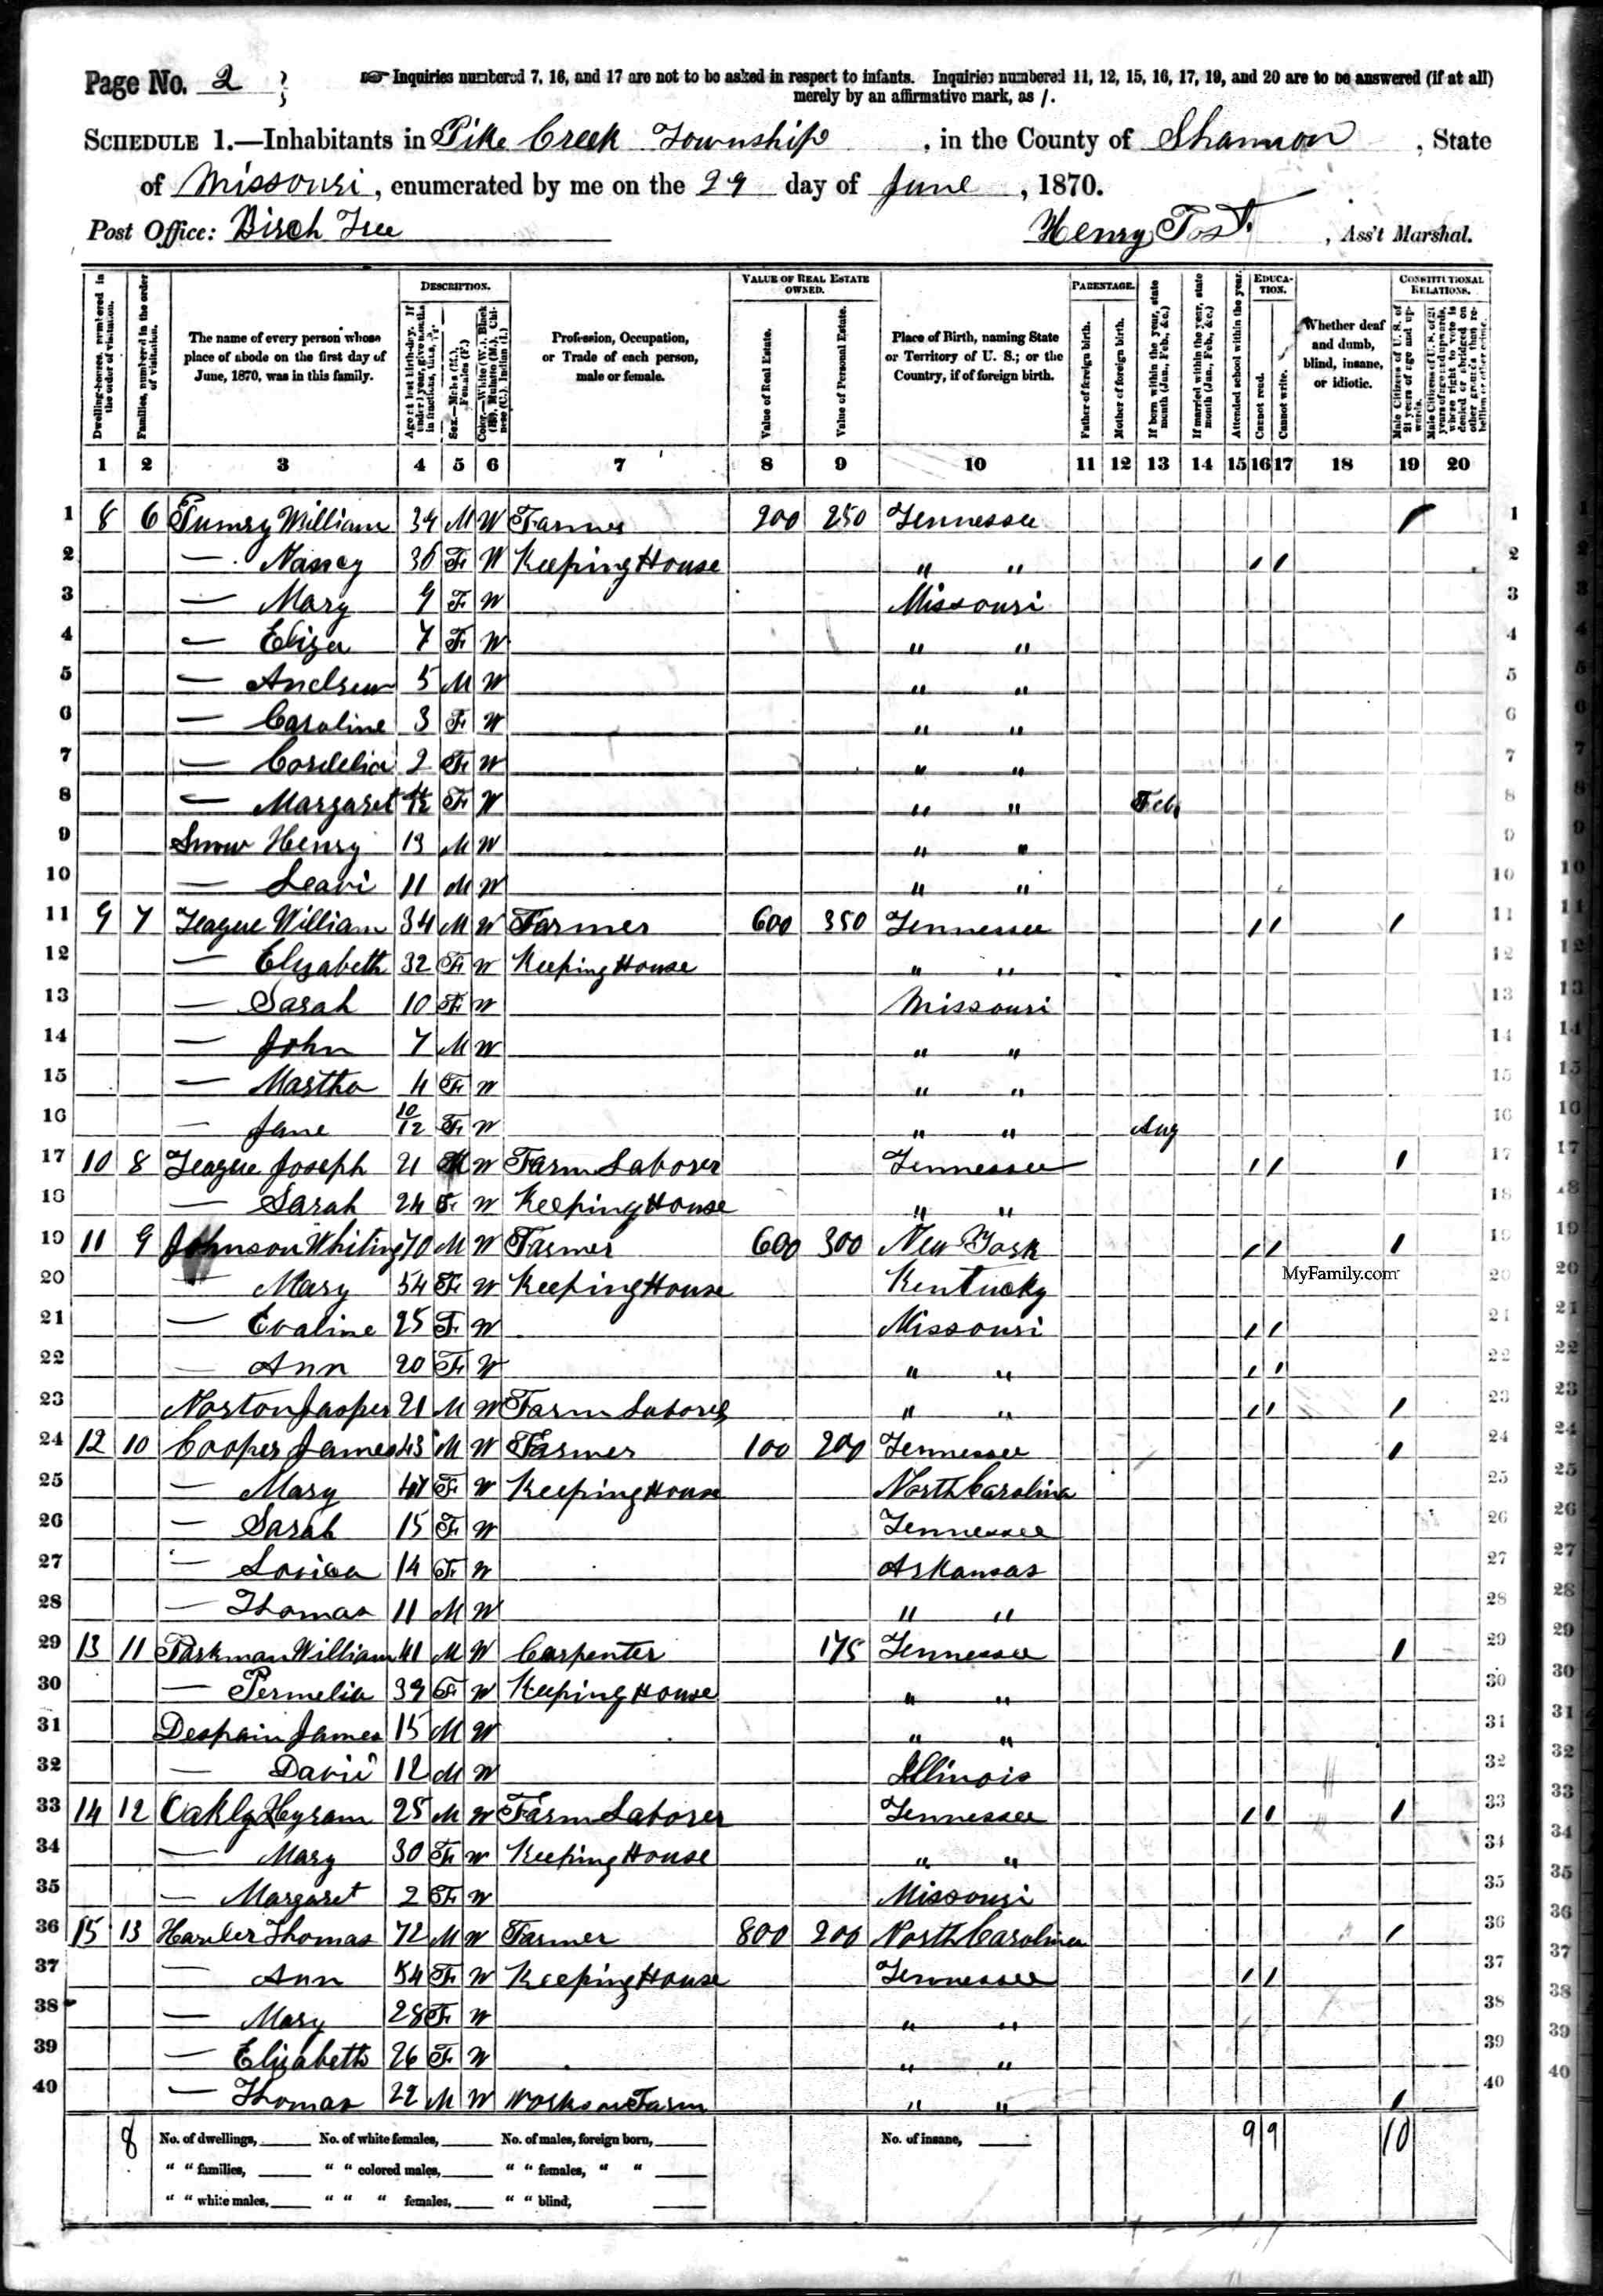 Page No. 2
Inquiries numbered 7, 16, and 17 are not to be asked in respect to infants. Inquiries numbered 11, 12, 15, 16, 17, 19, and 20 are to be answered (if at all)
merely by an affirmative mark, as /.
SCHEDULE 1.—Inhabitants in Pike Creek Township, in the County of Shannon, State
of Missouri, enumerated by me on the 29 day of June, 1870.
Post Office: Birch Tree Henry, Ass't Marshal.
DESCRIPTION. VALUE OF REAL ESTATE OWNED. PARENTAGE. EDUCATION. CONSTITUTIONAL RELATIONS.
Dwelling-houses, numbered in the order of visitation.
Families, numbered in the order of visitation.
The name of every person whose place of abode on the first day of June, 1870, was in this family.
Age at last birth-day. If under 1 year, give months in fractions, thus,
Sex.—Males (M.), Females (F.)
Color.—White (W.), Black (B.), Mulatto (M.), Chinese (C.), Indian (I.)
Profession, Occupation, or Trade of each person, male or female.
Value of Real Estate.
Value of Personal Estate.
Place of Birth, naming State or Territory of U. S.; or the Country, if of foreign birth.
Father of foreign birth.
Mother of foreign birth.
If born within the year, state month (Jan., Feb., &c.)
If married within the year, state month (Jan., Feb., &c.)
Attended school within the year.
Cannot read.
Cannot write.
Whether deaf and dumb, blind, insane, or idiotic.
Male Citizens of U. S. of 21 years of age and upwards.
Male Citizens of U. S. of 21 years of age and upwards, where right to vote is denied or abridged on other grounds than rebellion or other crime.
1 2 3 4 5 6 7 8 9 10 11 12 13 14 15 16 17 18 19 20
1 8 6 William 34 M W Farmer 200 250 Tennessee / 1
2 — Nancy 36 F W Keeping House " " / / 2
3 — Mary 9 F W Missouri 3
4 — Eliza 7 F W " " 4
5 — Andrew 5 M W " " 5
6 — Caroline 3 F W " " 6
7 — Cordelia 2 F W " " 7
8 — Margaret F W " " Feb 8
9 Snow Henry 13 M W " " 9
10 — Leavi 11 M W " " 10
11 9 7 Teague William 34 M W Farmer 600 350 Tennessee / / / 11
12 — Elizabeth 32 F W Keeping House " " 12
13 — Sarah 10 F W Missouri 13
14 — John 7 M W " " 14
15 — Martha 4 F W " " 15
16 — Jane 10/12 F W " " Aug 16
17 10 8 Teague Joseph 21 M W Farm Laborer Tennessee / / / 17
18 — Sarah 24 F W Keeping House " " 18
19 11 9 Johnson Whiting 70 M W Farmer 600 300 New York / / / 19
MyFamily.com
20 — Mary 54 F W Keeping House Kentucky 20
21 — Evaline 25 F W Missouri / / 21
22 — Ann 20 F W " " / / 22
23 Norton Jasper 21 M W Farm Laborer " " / / / 23
24 12 10 Cooper James 43 M W Farmer 100 200 Tennessee / 24
25 — Mary 47 F W Keeping House North Carolina 25
26 — Sarah 15 F W Tennessee 26
27 — Louisa 14 F W Arkansas 27
28 — Thomas 11 M W " " 28
29 13 11 Parkman William 41 M W Carpenter 175 Tennessee / 29
30 — Permelia 39 F W Keeping House " " 30
31 Despain James 15 M W " " 31
32 — David 12 M W Illinois 32
33 14 12 Oakly Hyram 25 M W Farm Laborer Tennessee / / / 33
34 — Mary 30 F W Keeping House " " 34
35 — Margaret 2 F W Missouri 35
36 15 13 Thomas 72 M W Farmer 800 200 North Carolina / 36
37 — Ann 54 F W Keeping House Tennessee / / 37
38 — Mary 28 F W " " 38
39 — Elizabeth 26 F W " " 39
40 — Thomas 22 M W Works on Farm " " / 40
8 No. of dwellings, No. of white females, No. of males, foreign born, No. of insane, 9 9 10
" " families, " " colored males, " " females, " "
" " white males, " " " females, " " blind,